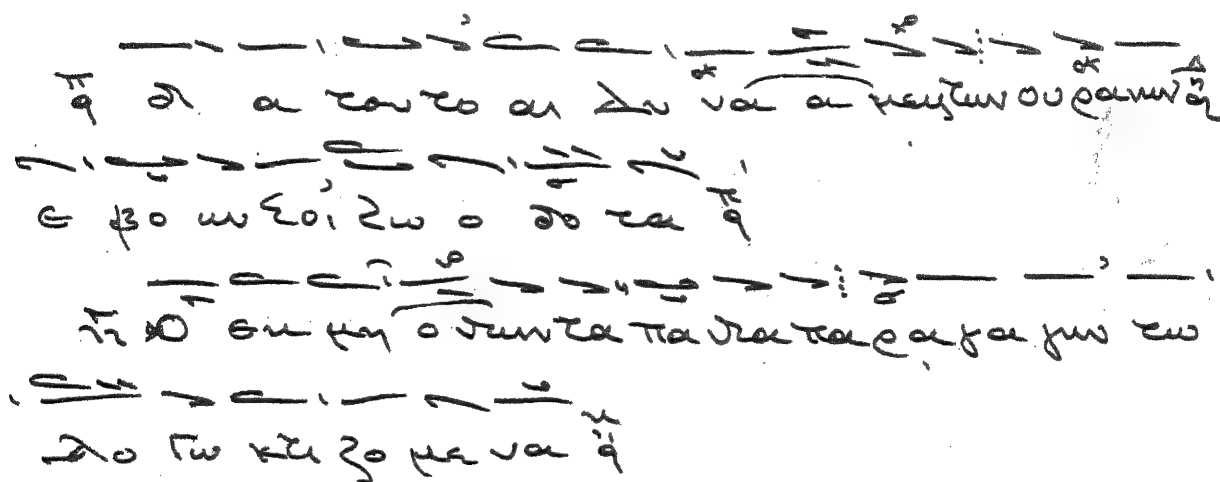 δι α του το αι Δυ να α μεις των ου ρα νων
ε βο ων Σοι Ζω ο δο τα
Ο εκ μη ο ντων τα πα ντα πα ρα γα γων τω
Λο γω κτι ζο με να